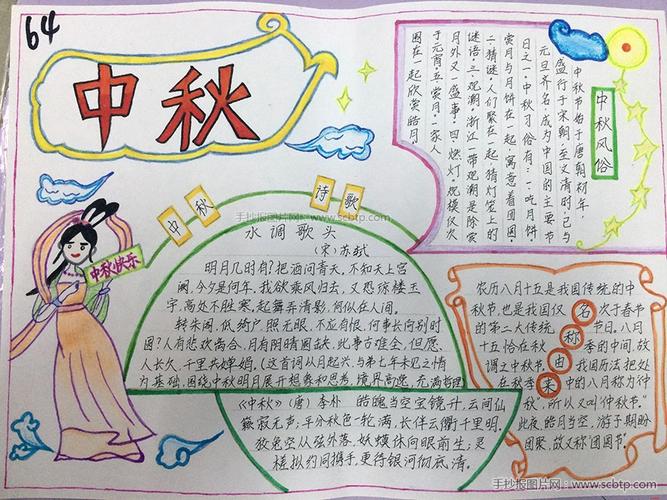 64
中秋
中秋风俗
中秋节始于唐朝初年,
盛行于宋朝,至义清时,已与
元旦齐名成为中国的主要节
日之一.中秋习俗有:一.吃月饼
赏月与月饼在一起,寓意着团圆.
二.猜谜.人们聚在一起,猜灯笼上的
谜语.三.观潮.浙江一带观潮是除赏
月外又一盛事.四.燃灯.规模仅次
于元宵.五.赏月.一家人
围在一起欣赏皓月
中秋诗歌
手抄报图片网:www.scbtp.com
中秋快乐
水调歌头
(宋)苏轼
明月几时有?把酒问青天,不知天上宫
阙,今夕是何年,我欲乘风归去,又恐琼楼玉
宇,高处不胜寒,起舞弄清影,何似在人间。
转朱阁,低绮户,照无眠,不应有恨,何事长向别时
圆?人有悲欢离合,月有阴晴圆缺,此事古难全,但愿
人长久,千里共婵娟,(这首词从月起兴,与弟七年未见之情
为基础,围绕中秋明月展开想象和思考,境界高逸,充满哲理
《中秋》(唐)李朴 皓魄当空宝镜升,云间仙
籁寂无声;平分秋色一轮满,长伴云衢千里明.
狡兔空从弦外落,妖蟆休向眼前生;灵
槎拟约同携手,更待银河彻底清.
名称由来
农历八月十五是我国传统的中
秋节,也是我国仅次于春节
的第二大传统节日,八月
十五恰在秋季的中间,故
谓之中秋节.我国历法把处
在秋季中的八月称为"仲
秋",所以又叫"仲秋节."
此夜,皓月当空,游子期盼
团聚,故又称"团圆节".
手抄报图片网:www.scbtp.com